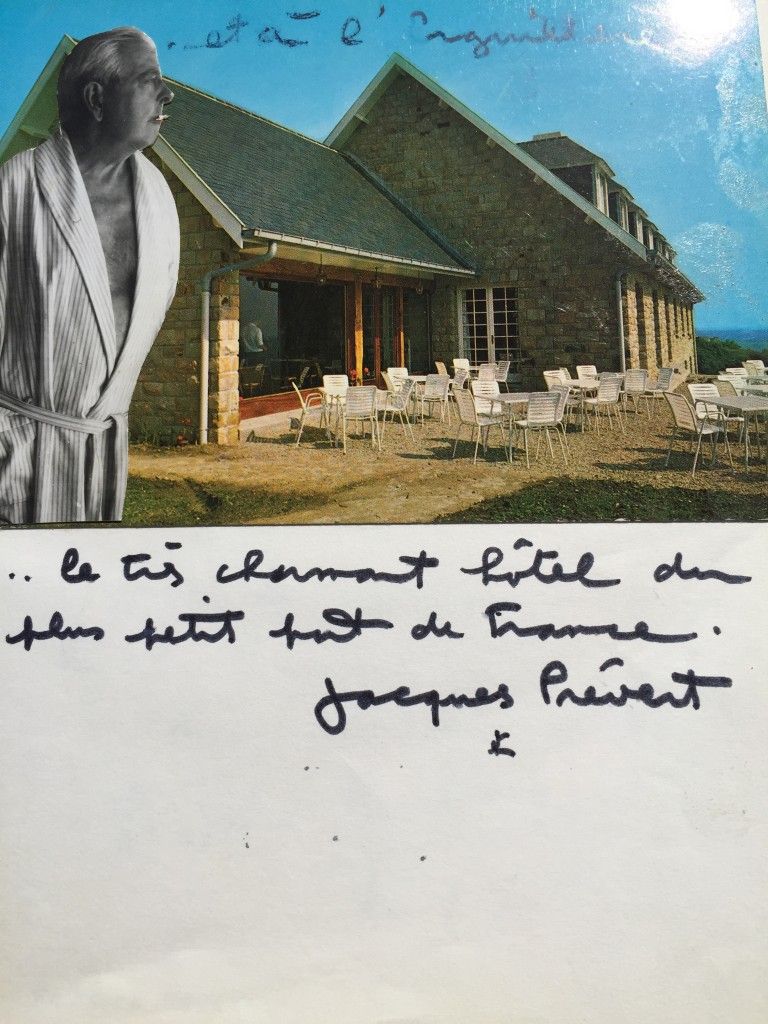 ..et à l'Erguillère
.. le très charmant hôtel du
plus petit port de France.
Jacques Prévert